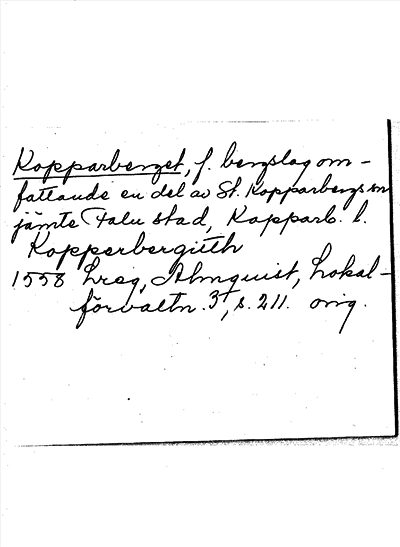 Kopparberget, f. bergslag om-
fattande en del av St. Kopparbergs sn
jämte Falu stad, Kopparb. l.
Kopperbergith
1558 Lreg, Almquist, Lokal-
förvaltn. 3, s. 211. orig.